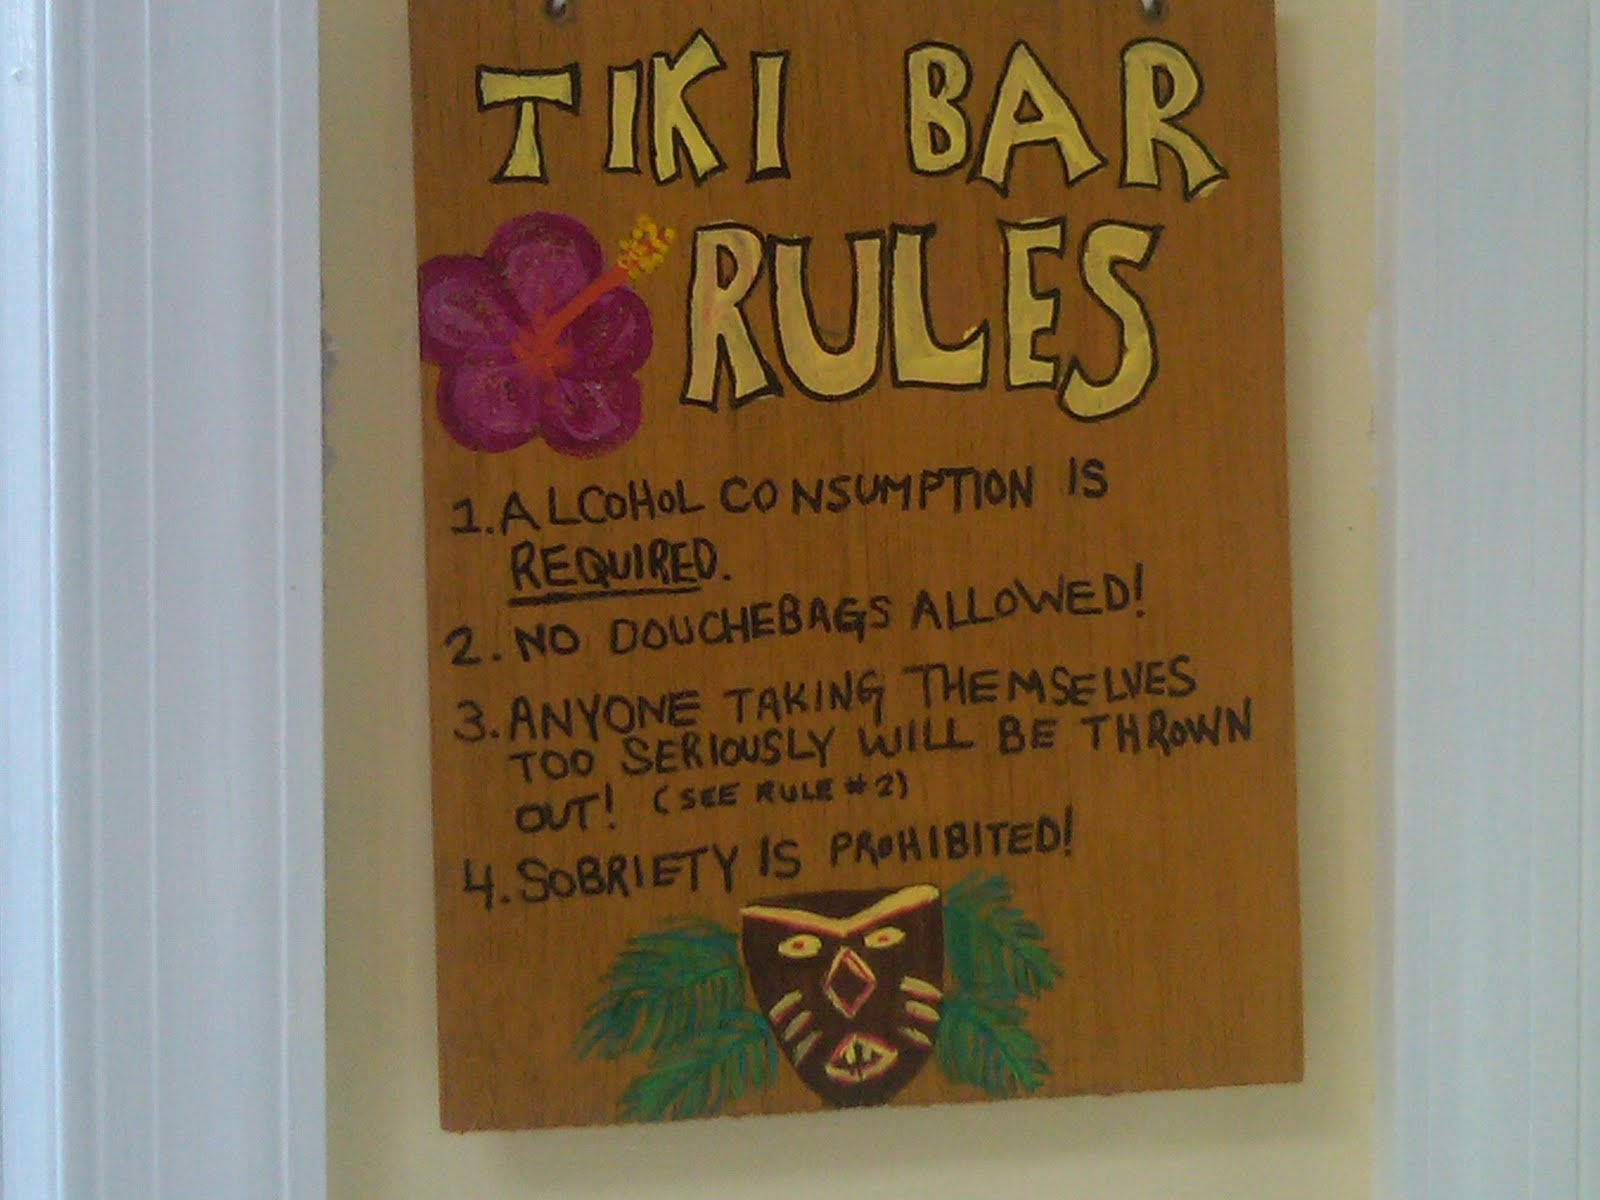 TIKI BAR
RULES
1. ALCOHOL CONSUMPTION IS
REQUIRED.
2. NO DOUCHEBAGS ALLOWED!
3. ANYONE TAKING THEMSELVES
TOO SERIOUSLY WILL BE THROWN
OUT! (SEE RULE #2)
4. SOBRIETY IS PROHIBITED!